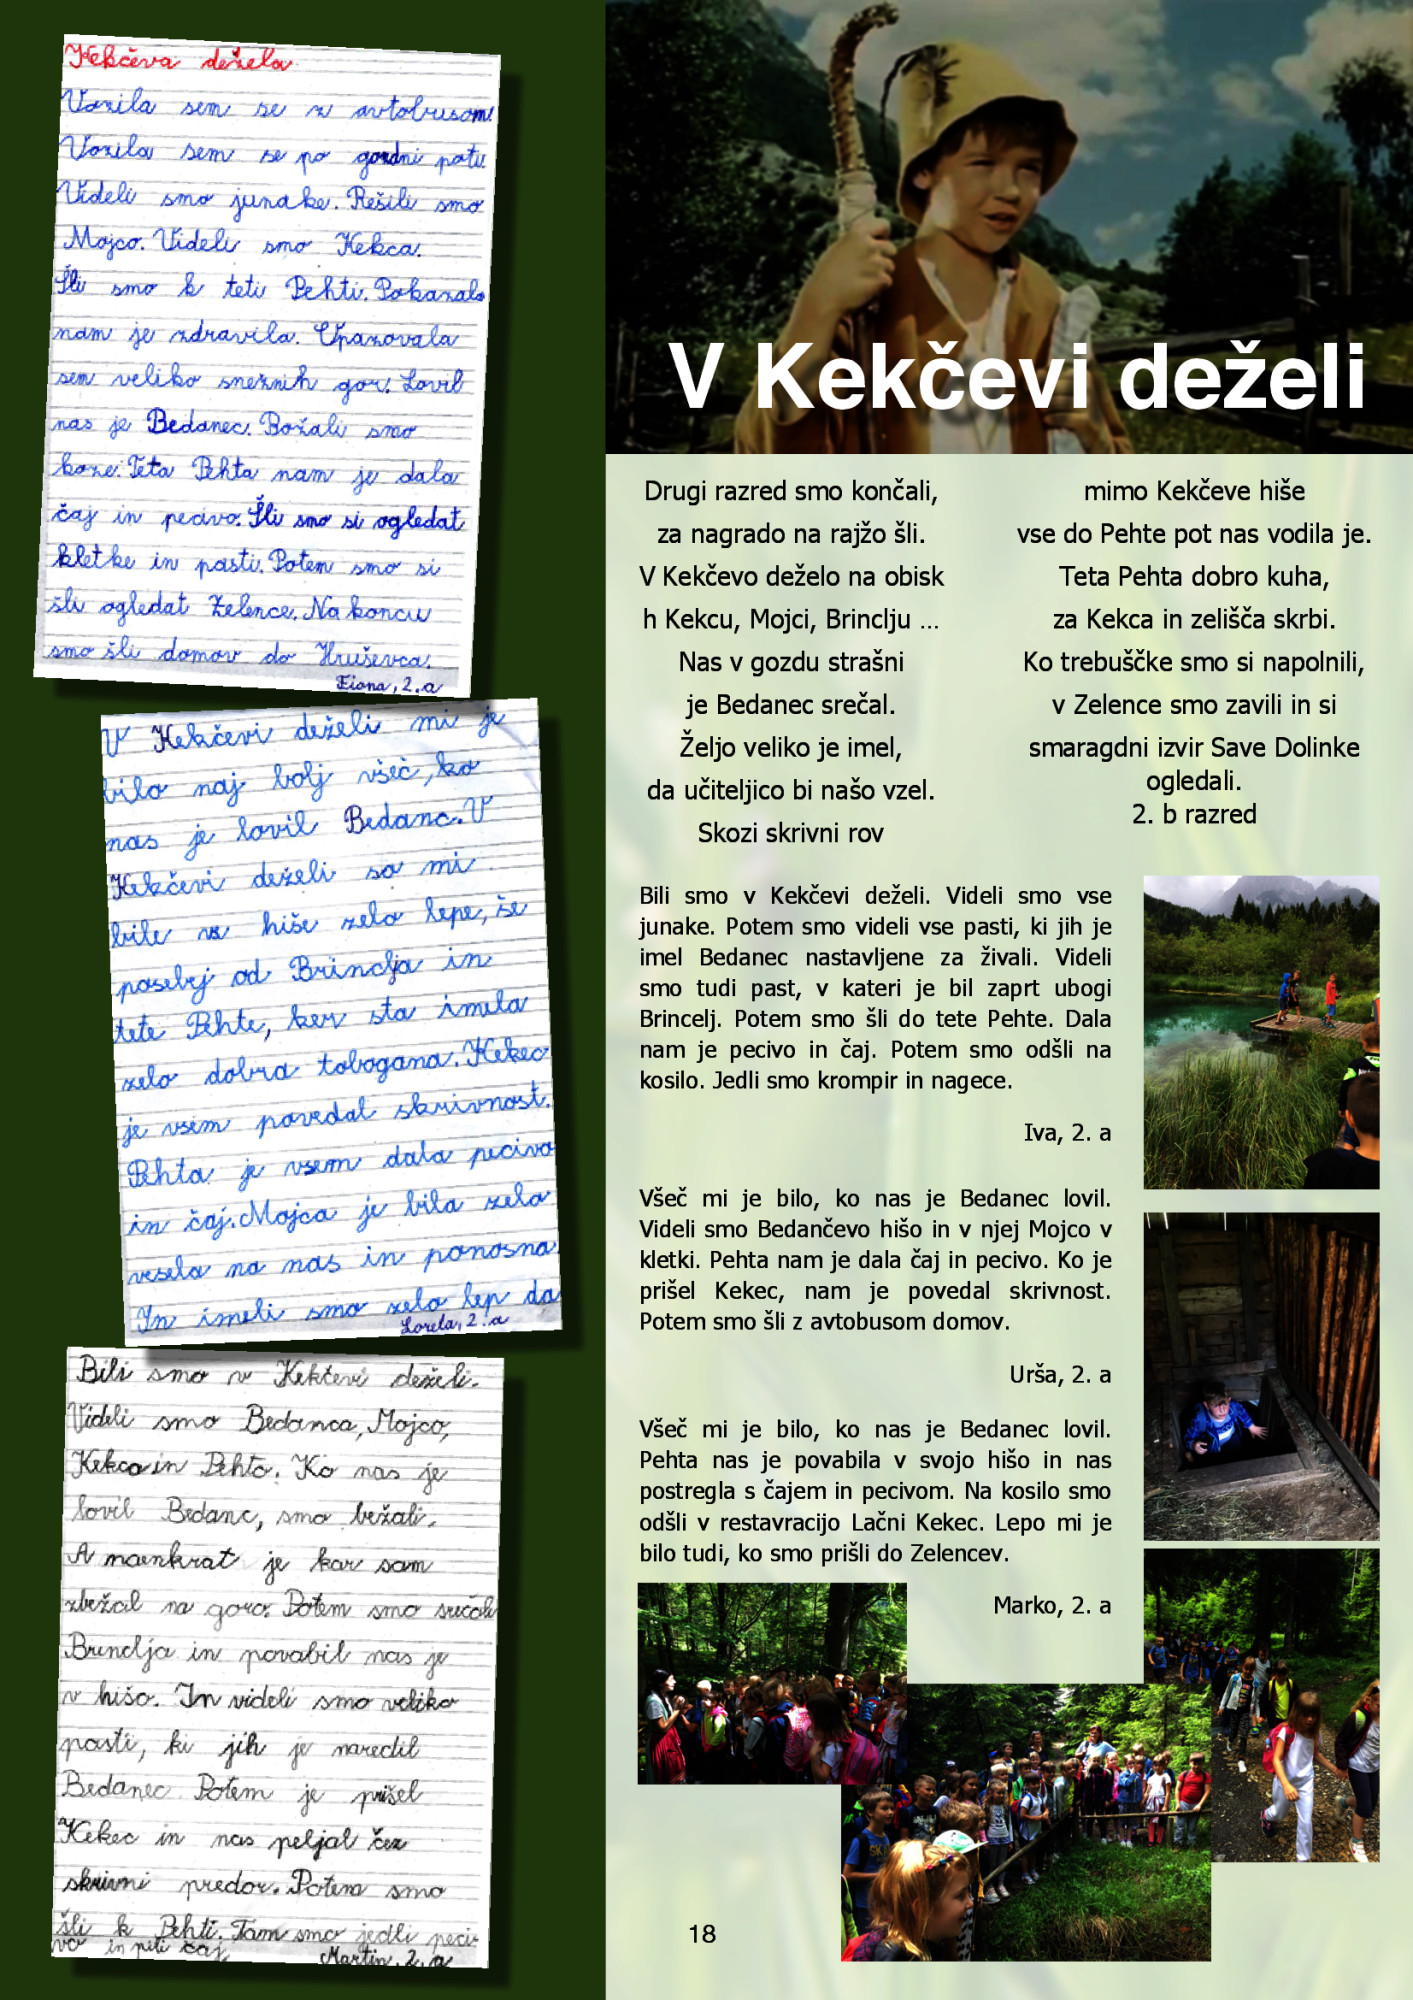 Kekčeva dežela
Vozila sem se z avtobusom.
Vozila sem se po gozdni poti.
Videli smo junake. Rešili smo
Mojco. Videli smo Kekca.
Šli smo k teti Pehti. Pokazala
nam je zdravila. Opazovala
sem veliko snežnih gor. Lovil
nas je Bedanec. Božali smo
koze. Teta Pehta nam je dala
čaj in pecivo. Šli smo si ogledat
kletke in pasti. Potem smo si
šli ogledat Zelence. Na koncu
smo šli domov do Hruševca.
2. a
V Kekčevi deželi mi je
bilo naj bolj všeč, ko
nas je lovil Bedanc. V
Kekčevi deželi so mi
bile vse hiše zelo lepe, še
posebej od Brinclja in
tete Pehte, ker sta imela
zelo dobra tobogana. Kekec
je vsem povedal skrivnost.
Pehta je vsem dala pecivo
in čaj. Mojca je bila zelo
vesela na nas in ponosna.
In imeli smo zelo lep da
Lorela, 2. a
Bili smo v Kekčevi deželi.
Videli smo Bedanca, Mojco,
Kekca in Pehto. Ko nas je
lovil Bedanc, smo bežali.
A maenkrat je kar sam
zbežal na goro. Potem smo srečali
Brinclja in povabil nas je
v hišo. In videli smo veliko
pasti, ki jih je naredil
Bedanec. Potem je prišel
Kekec in nas peljal čez
skrivni predor. Potem smo
šli k Pehti. Tam smo jedli peci-
vo in pili čaj. Martin, 2. a
V Kekčevi deželi
Drugi razred smo končali,
za nagrado na rajžo šli.
V Kekčevo deželo na obisk
h Kekcu, Mojci, Brinclju ...
Nas v gozdu strašni
je Bedanec srečal.
Željo veliko je imel,
da učiteljico bi našo vzel.
Skozi skrivni rov
mimo Kekčeve hiše
vse do Pehte pot nas vodila je.
Teta Pehta dobro kuha,
za Kekca in zelišča skrbi.
Ko trebuščke smo si napolnili,
v Zelence smo zavili in si
smaragdni izvir Save Dolinke
ogledali.
2. b razred
Bili smo v Kekčevi deželi. Videli smo vse
junake. Potem smo videli vse pasti, ki jih je
imel Bedanec nastavljene za živali. Videli
smo tudi past, v kateri je bil zaprt ubogi
Brincelj. Potem smo šli do tete Pehte. Dala
nam je pecivo in čaj. Potem smo odšli na
kosilo. Jedli smo krompir in nagece.
Iva, 2. a
Všeč mi je bilo, ko nas je Bedanec lovil.
Videli smo Bedančevo hišo in v njej Mojco v
kletki. Pehta nam je dala čaj in pecivo. Ko je
prišel Kekec, nam je povedal skrivnost.
Potem smo šli z avtobusom domov.
Urša, 2. a
Všeč mi je bilo, ko nas je Bedanec lovil.
Pehta nas je povabila v svojo hišo in nas
postregla s čajem in pecivom. Na kosilo smo
odšli v restavracijo Lačni Kekec. Lepo mi je
bilo tudi, ko smo prišli do Zelencev.
Marko, 2. a
18